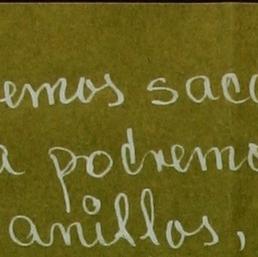 emos saca
a podremo
anillos,